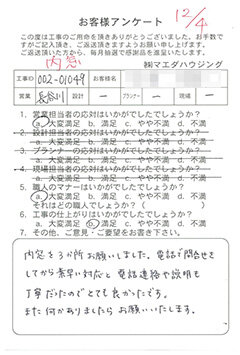 お客様アンケート
12/4
この度は工事のご用命を頂きありがとうございました。お手数で
すがご記入頂き、ご返送頂きますようお願い申し上げます。
ご返送頂いた方から、毎月抽選で感謝品を進呈いたします。
内窓
㈱マエダハウジング
工事ID 002-01049 お客様名
営業 長谷川 設計 ー プランナー ー 現場 ー
1. 営業担当者の応対はいかがでしたでしょうか?
a. 大変満足 b. 満足 c. やや不満 d. 不満
2. 設計担当者の応対はいかがでしたでしょうか?
a. 大変満足 b. 満足 c. やや不満 d. 不満
3. プランナーの応対はいかがでしたでしょうか?
a. 大変満足 b. 満足 c. やや不満 d. 不満
4. 現場担当者の応対はいかがでしたでしょうか?
a. 大変満足 b. 満足 c. やや不満 d. 不満
5. 職人のマナーはいかがでしたでしょうか?
a. 大変満足 b. 満足 c. やや不満 d. 不満
それはどの職人でしょうか?( )
6. 工事の仕上がりはいかがでしたでしょうか?
a. 大変満足 b. 満足 c. やや不満 d. 不満
7. その他、ご意見・ご要望をお書き下さい。
内窓を3か所お願いしました。電話で問合せを
してから素早い対応と電話連絡や説明も
丁寧だったのでとても良かったです。
また何かありましたらお願いいたします。